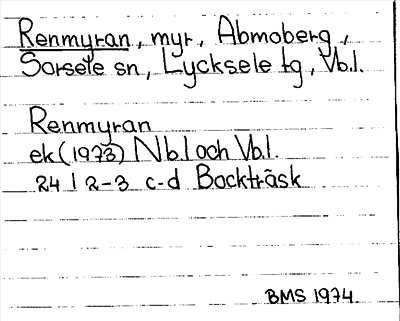 Renmyran, myr, Abmoberg,
Sorsele sn, Lycksele tg, Vb.l.
Renmyran
ek (1973) Nb.l och Vb.l.
24 I 2-3 c-d Backträsk
BMS 1974.